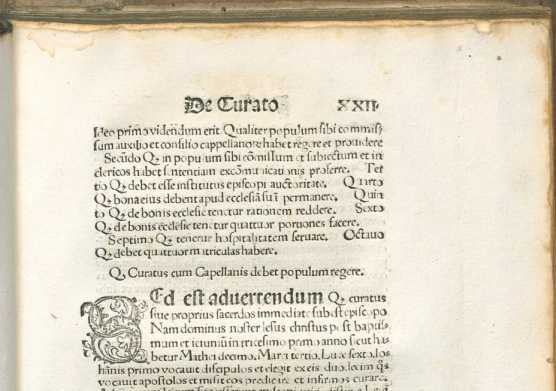 De Curato XXII
Ideo primo videndum erit Qualiter populum sibi commis/
sum auxilio et consilio cappellanorum habet regere et prouidere
Secūdo Qꝫ in populum sibi cōmissum et subiectum et in
clericos habet sententiam excōmunicationis proferre. Ter
tio Qꝫ debet esse institutus episcopi auctoritate. Quarto
Qꝫ bona eius debent apud ecclesiā suā permanere. Quin
to Qꝫ de bonis ecclesie tenetur rationem reddere. Sexto
Qꝫ de bonis ecclesie tenetur quattuor portiones facere.
Septimo Qꝫ tenetur hospitalitatem seruare. Octauo
Qꝫ debet quattuor matriculas habere.
Qꝫ Curatus cum Capellanis debet populum regere.
Sed est aduertendum Qꝫ curatus
siue proprius sacerdos immediate subest episcopo
Nam dominus noster iesus christus post baptis
mum et ieiunium in tricesimo primo anno sicut ha
betur Mathei decimo, Marci tertio, Luce sexto Ios
hānis primo vocauit discipulos et elegit ex eis duodecim qs
vocauit apostolos et misit eos predicare et infirmos curare.